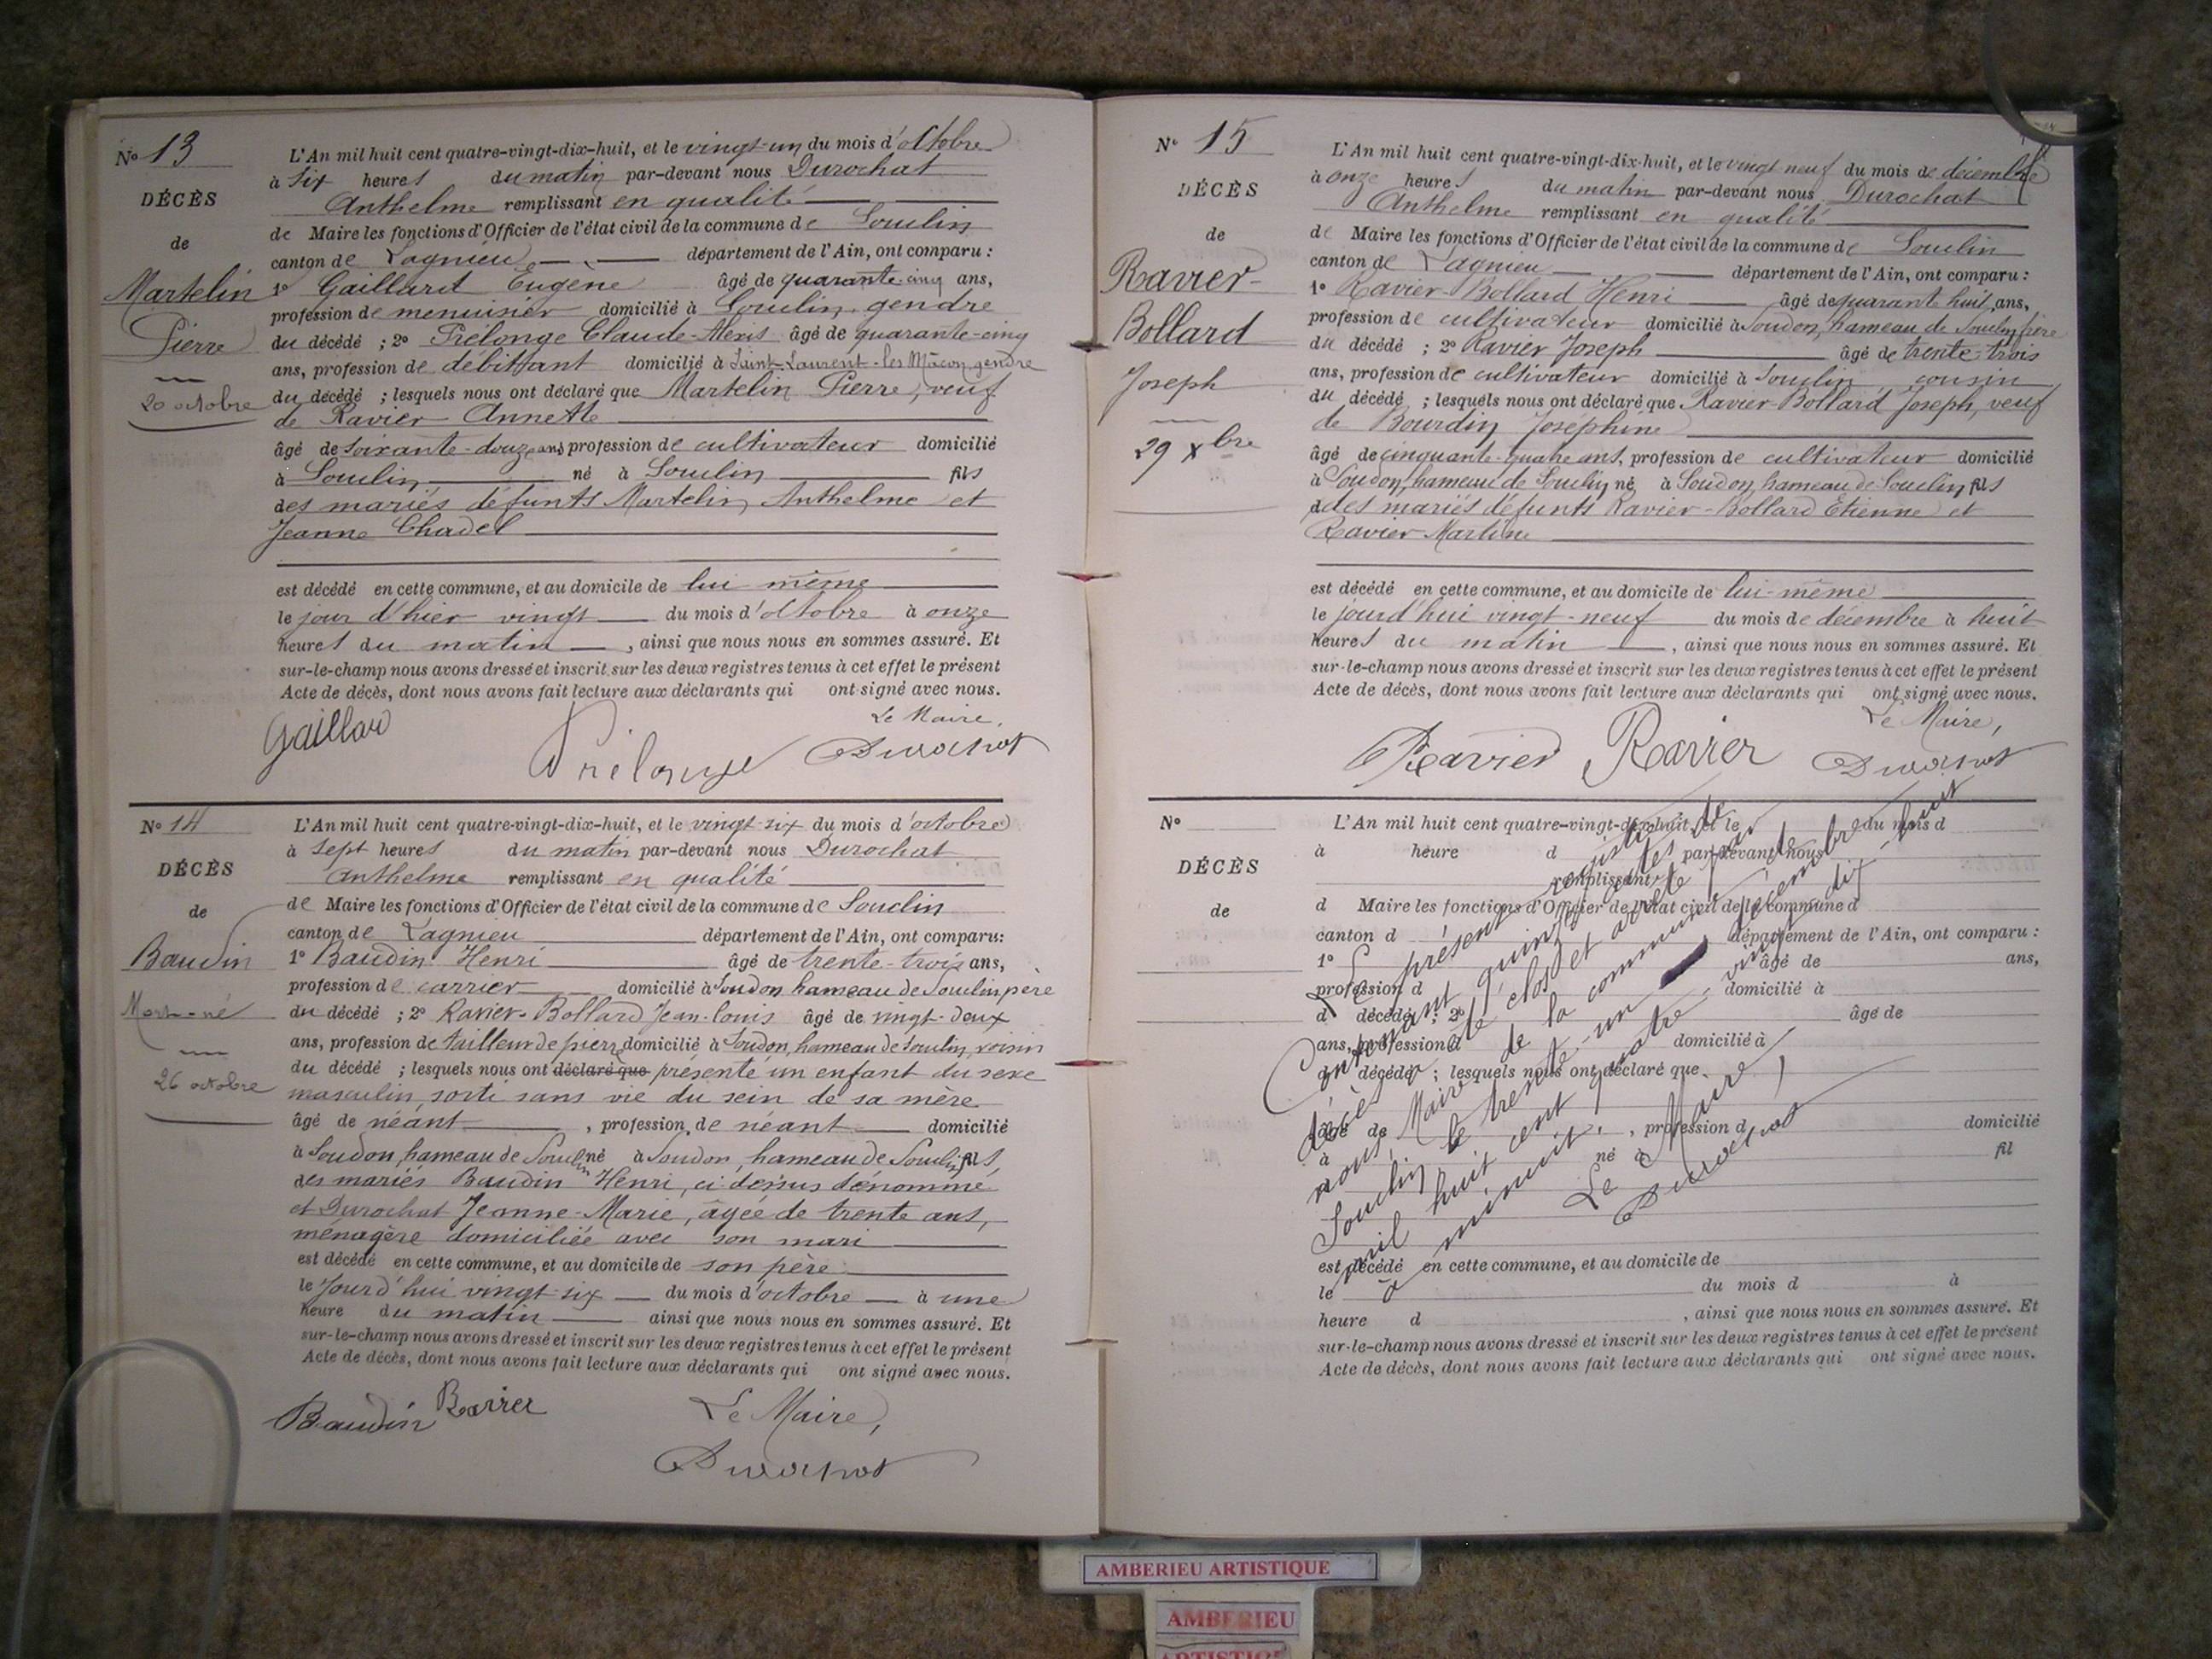 No 13
DÉCÈS
de
Martelin
Pierre
20 octobre
L'An mil huit cent quatre-vingt-dix-huit, et le vingt-un du mois d'octobre
à six heures du matin par-devant nous Durochat
Anthelme remplissant en qualité
de Maire les fonctions d'Officier de l'état civil de la commune de Souclin
canton de Lagnieu département de l'Ain, ont comparu :
1o Gaillard Eugène âgé de quarante-cinq ans,
profession de menuisier domicilié à Souclin, gendre
du décédé ; 2o Prélonge Claude-Alexis âgé de quarante-cinq
ans, profession de débittant domicilié à Saint-Laurent-les-Mâcon, gendre
du décédé ; lesquels nous ont déclaré que Martelin Pierre, veuf
de Ravier Annette
âgé de soixante-douze ans profession de cultivateur domicilié
à Souclin né à Souclin fils
des mariés défunts Martelin Anthelme et
Jeanne Chadel
est décédé en cette commune, et au domicile de lui même
le jour d'hier vingt du mois d'octobre à onze
heures du matin , ainsi que nous nous en sommes assuré. Et
sur-le-champ nous avons dressé et inscrit sur les deux registres tenus à cet effet le présent
Acte de décès, dont nous avons fait lecture aux déclarants qui ont signé avec nous.
Le Maire,
Gaillar Prélonge Durochat
No 14
DÉCÈS
de
Baudin
Mort-né
26 octobre
L'An mil huit cent quatre-vingt-dix-huit, et le vingt-six du mois d'octobre
à sept heures du matin par-devant nous Durochat
Anthelme remplissant en qualité
de Maire les fonctions d'Officier de l'état civil de la commune de Souclin
canton de Lagnieu département de l'Ain, ont comparu:
1o Baudin Henri âgé de trente-trois ans,
profession de carrier domicilié à Soudon hameau de Souclin père
du décédé ; 2o Ravier-Bollard Jean-Louis âgé de vingt-deux
ans, profession de tailleur de pierre domicilié à Soudon, hameau de Souclin, voisin
du décédé ; lesquels nous ont déclaré que présenté un enfant du sexe
masculin, sorti sans vie du sein de sa mère
âgé de néant , profession de néant domicilié
à Soudon, hameau de Souclin né à Soudon, hameau de Souclin fils,
des mariés Baudin Henri, ci dessus dénommé
et Durochat Jeanne-Marie, âgée de trente ans,
ménagère domiciliée avec son mari
est décédé en cette commune, et au domicile de son père
le jourd'hui vingt-six du mois d'octobre à une
heure du matin ainsi que nous nous en sommes assuré. Et
sur-le-champ nous avons dressé et inscrit sur les deux registres tenus à cet effet le présent
Acte de décès, dont nous avons fait lecture aux déclarants qui ont signé avec nous.
Baudin Ravier Le Maire,
Durochat
No 15
DÉCÈS
de
Ravier-
Bollard
Joseph
29 Xbre
L'An mil huit cent quatre-vingt-dix-huit, et le vingt neuf du mois de décembre
à onze heures du matin par-devant nous Durochat
Anthelme remplissant en qualité
de Maire les fonctions d'Officier de l'état civil de la commune de Souclin
canton de Lagnieu département de l'Ain, ont comparu :
1o Ravier-Bollard Henri âgé de quarant huit ans,
profession de cultivateur domicilié à Soudon, hameau de Souclin frère
du décédé ; 2o Ravier Joseph âgé de trente-trois
ans, profession de cultivateur domicilié à Souclin, cousin
du décédé ; lesquels nous ont déclaré que Ravier-Bollard Joseph, veuf
de Bourdin Joséphine
âgé de cinquante-quatre ans, profession de cultivateur domicilié
à Soudon, hameau de Souclin né à Soudon, hameau de Souclin fils
des mariés défunts Ravier-Bollard Etienne et
Ravier Martine
est décédé en cette commune, et au domicile de lui-même
le jourd'hui vingt-neuf du mois de décembre à huit
heures du matin , ainsi que nous nous en sommes assuré. Et
sur-le-champ nous avons dressé et inscrit sur les deux registres tenus à cet effet le présent
Acte de décès, dont nous avons fait lecture aux déclarants qui ont signé avec nous.
Le Maire,
Ravier Ravier Durochat
No
DÉCÈS
de
L'An mil huit cent quatre-vingt-dix-huit, et le du mois d
à heure d par-devant nous
remplissant
d Maire les fonctions d'Officier de l'état civil de la commune d
canton d département de l'Ain, ont comparu :
1o âgé de ans,
profession d domicilié à
d décédé ; 2o âgé de
ans, profession d domicilié à
d décédé ; lesquels nous ont déclaré que
âgé de , profession d domicilié
à né à fil
est décédé en cette commune, et au domicile de
le du mois d à
heure d , ainsi que nous nous en sommes assuré. Et
sur-le-champ nous avons dressé et inscrit sur les deux registres tenus à cet effet le présent
Acte de décès, dont nous avons fait lecture aux déclarants qui ont signé avec nous.
Le présent registre de
contenant quinze actes
décès a été clos et arrêté par
nous, Maire de la commune de
Souclin, le trente-un décembre
mil huit cent quatre vingt dix-huit
à minuit.
Le Maire,
Durochat
AMBERIEU ARTISTIQUE
AMBERIEU
ARTISTIQUE